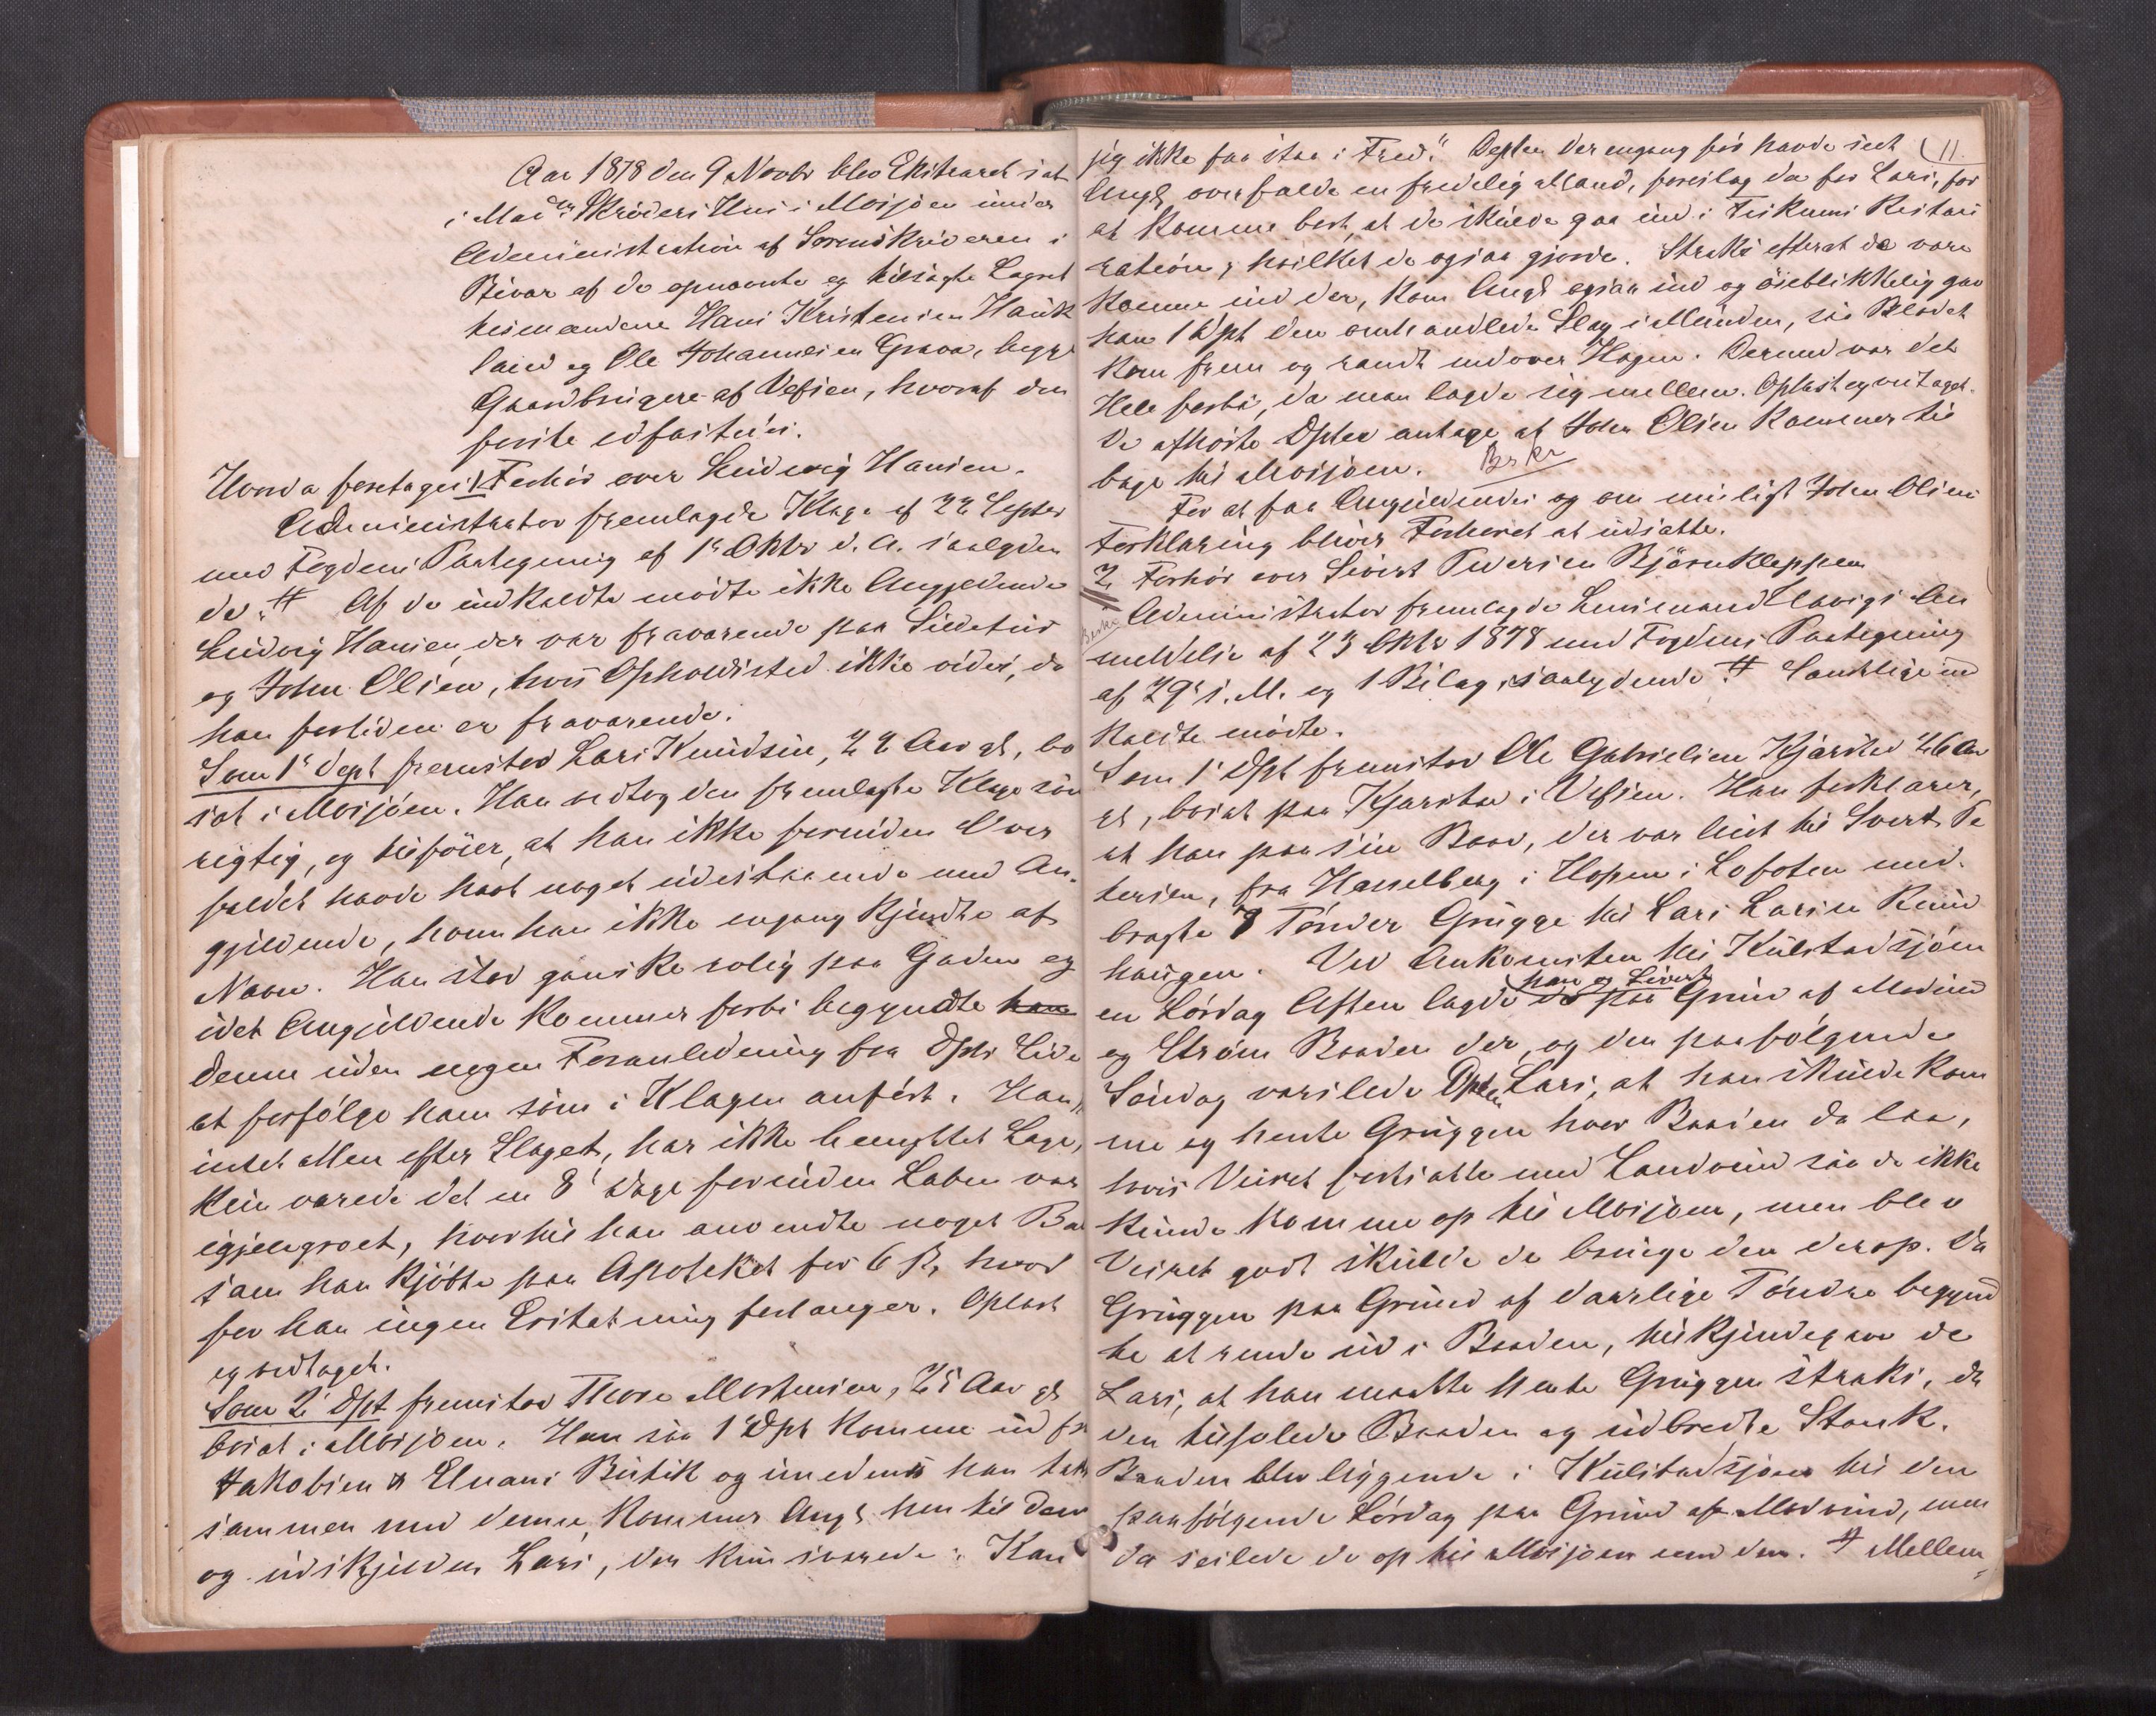 Aar 1878 den 9 Novbr blev Extraret sat
i Mad. Skröders Hus i Mosjöen under
Administration af Sorenskriveren i
Bivær af de opnævnte og tilsagte Lagret
tesmændene Hans Kristensen Hauk
land og Ole Johannesen Grava, begge
Gaardbrugere af Vefsen, hvoraf den
første edfastes.
Hvorda foretages 1 Forhör over Ludevig Hansen.
Administrator fremlagde Klage af 22 Septbr
med Fogdens Paategning af 1ste Oktbr d. A. saalyden
de: # Af de indkaldte mödte ikke Anggjeldende
Ludvig Hansen, der var fraværende paa Sildetur
og John Olsen, hvis Opholdssted ikke vides, da
han fortiden er fraværende.
Som 1ste Dept fremstod Lars Knudsen, 22 Aar gl, bo
sat i Mosjöen. Han vedtog den fremlagte Klage som
rigtig, og tilföier, at han ikke forinden Over
faldet havde havt noget udestaaende med An-
gjeldende, hvem han ikke engang kjendte af
Navn. Han stod ganske rolig paa Gaden og
idet Angjeldende kommer forbi begyndte han
denne uden nogen Foranledning fra Dptr Side
at forfölge ham som i Klagen anfört. Han
intet Men efter Slaget, har ikke benyttet Læge,
kun varede det en 8te Dage forinden Læben var
igjengroet, hvortil han anvendte noget Bal
sam han kjöbte paa Apoteket for 6 ß, hvor
for han ingen Erstatning forlanger. Oplæst
og vedtaget.
Som 2 Dpt fremstod Thore Mortensen, 25 Aar gl
bosat i Mosjöen. Han saa 1ste Dpt komme ud fra
Jakobsen & Elnans Butik og imedens han tal
sammen med denne, kommer Angl hen til dem
og udskjelder Lars, der kun svarede: Kan
jeg ikke faa staa i Fred." Depten der engang för havde seet 11.
Angl overfalde en fredelig Mand, foreslog da for Lars, for
at komme bort, at de skulde gaa ind i Fiskums Restau
ration, hvilket de ogsaa gjorde. Straks efterat de vare
komne ind der, kom Angl ogsaa ind og öieblikkelig gav
han 1 Dpt den omhandlede Slag i Munden, saa Blodet
kom frem og randt nedover Hagen. Dermed var det
Hele forbi, da man lagde sig mellem. Oplæst og vedtaget.
De afhörte Dpter antage at John Olsen kommer til
bage til Mosjöen. Beskr
For at faa Angjeldendes og om muligt John Olsens
Forklaring bliver Forhöret at udsætte.
2 Forhör over Sivert Pedersen Björnkleppen
Beskr Administrator fremlagde Lensmand Havigs An
meldelse af 23 Oktbr 1878 med Fogdens Paategning
af 29 s. M. og 1 Bilag, saalydende: # Samtlige ind
kaldte mödte.
Som 1ste Dpt fremstod Ole Gabrielsen Kjærstad 26 Aar
gl, bosat paa Kjærstad i Vefsen. Han forklarer,
at han paa sin Baad, der var leiet til Sivert Pe
tersen, fra Hasselberg i Hopen i Lofoten med-
bragte 7 Tönder Grugge til Lars Larsen Remd
haugen. Ved Ankomsten til Kulstadsjöen
en Lördag Aften lagde de han og Sivert paa Grund af Modvind
og Ström Baaden der, og den paafölgende
Söndag varslede Dpten Lars, at han skulde kom
me og hente Gruggen hvor Baaden da laa,
hvis Veiret fortsatte med Landvind saa de ikke
kunde komme op til Mosjöen, men blev
Veiret godt skulde de bringe den derop. Da
Gruggen paa Grund af daarlige Töndre begynd
te at rende ud i Baaden, tilkjendegav de
Lars, at han maatte hente Gruggen straks, da
den tilsölede Baaden og udbredte Stank.
Baaden blev liggende i Kulstadsjöen til den
paafölgende Lördag paa Grund af Modvind, men
da seilede de op til Mosjöen med den. # Mellem